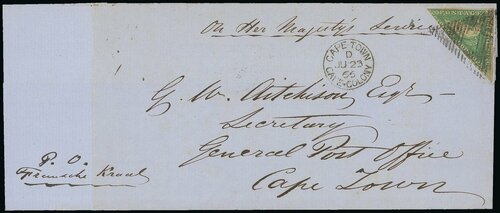 On Her Majesty's Service
POSTAGE
CAPE TOWN
D
JU 23
65
CAPE-COLONY
G. W. Aitchison, Esqr
Secretary
General Post Office
Cape Town
P. O.
Fransche Kraal